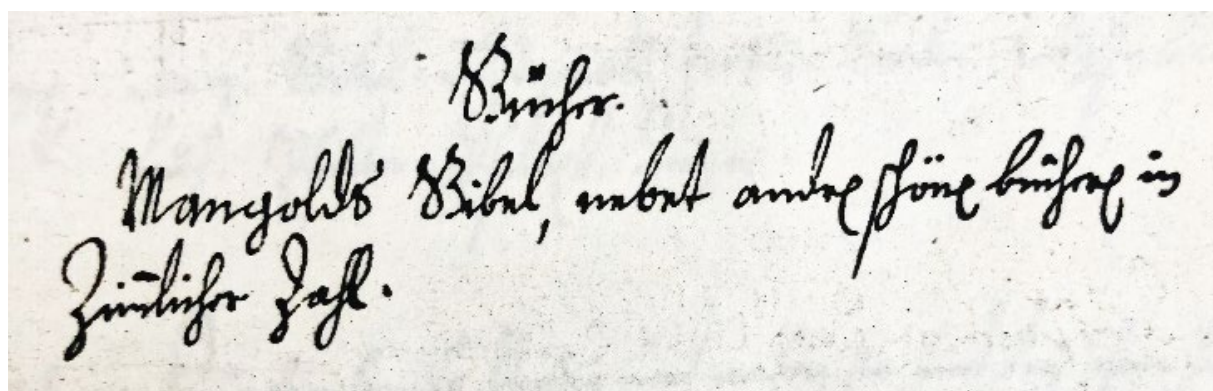 Bücher.
Mangolds Bibel, nebst andren schönen büchern in
Zimlicher Zahl.